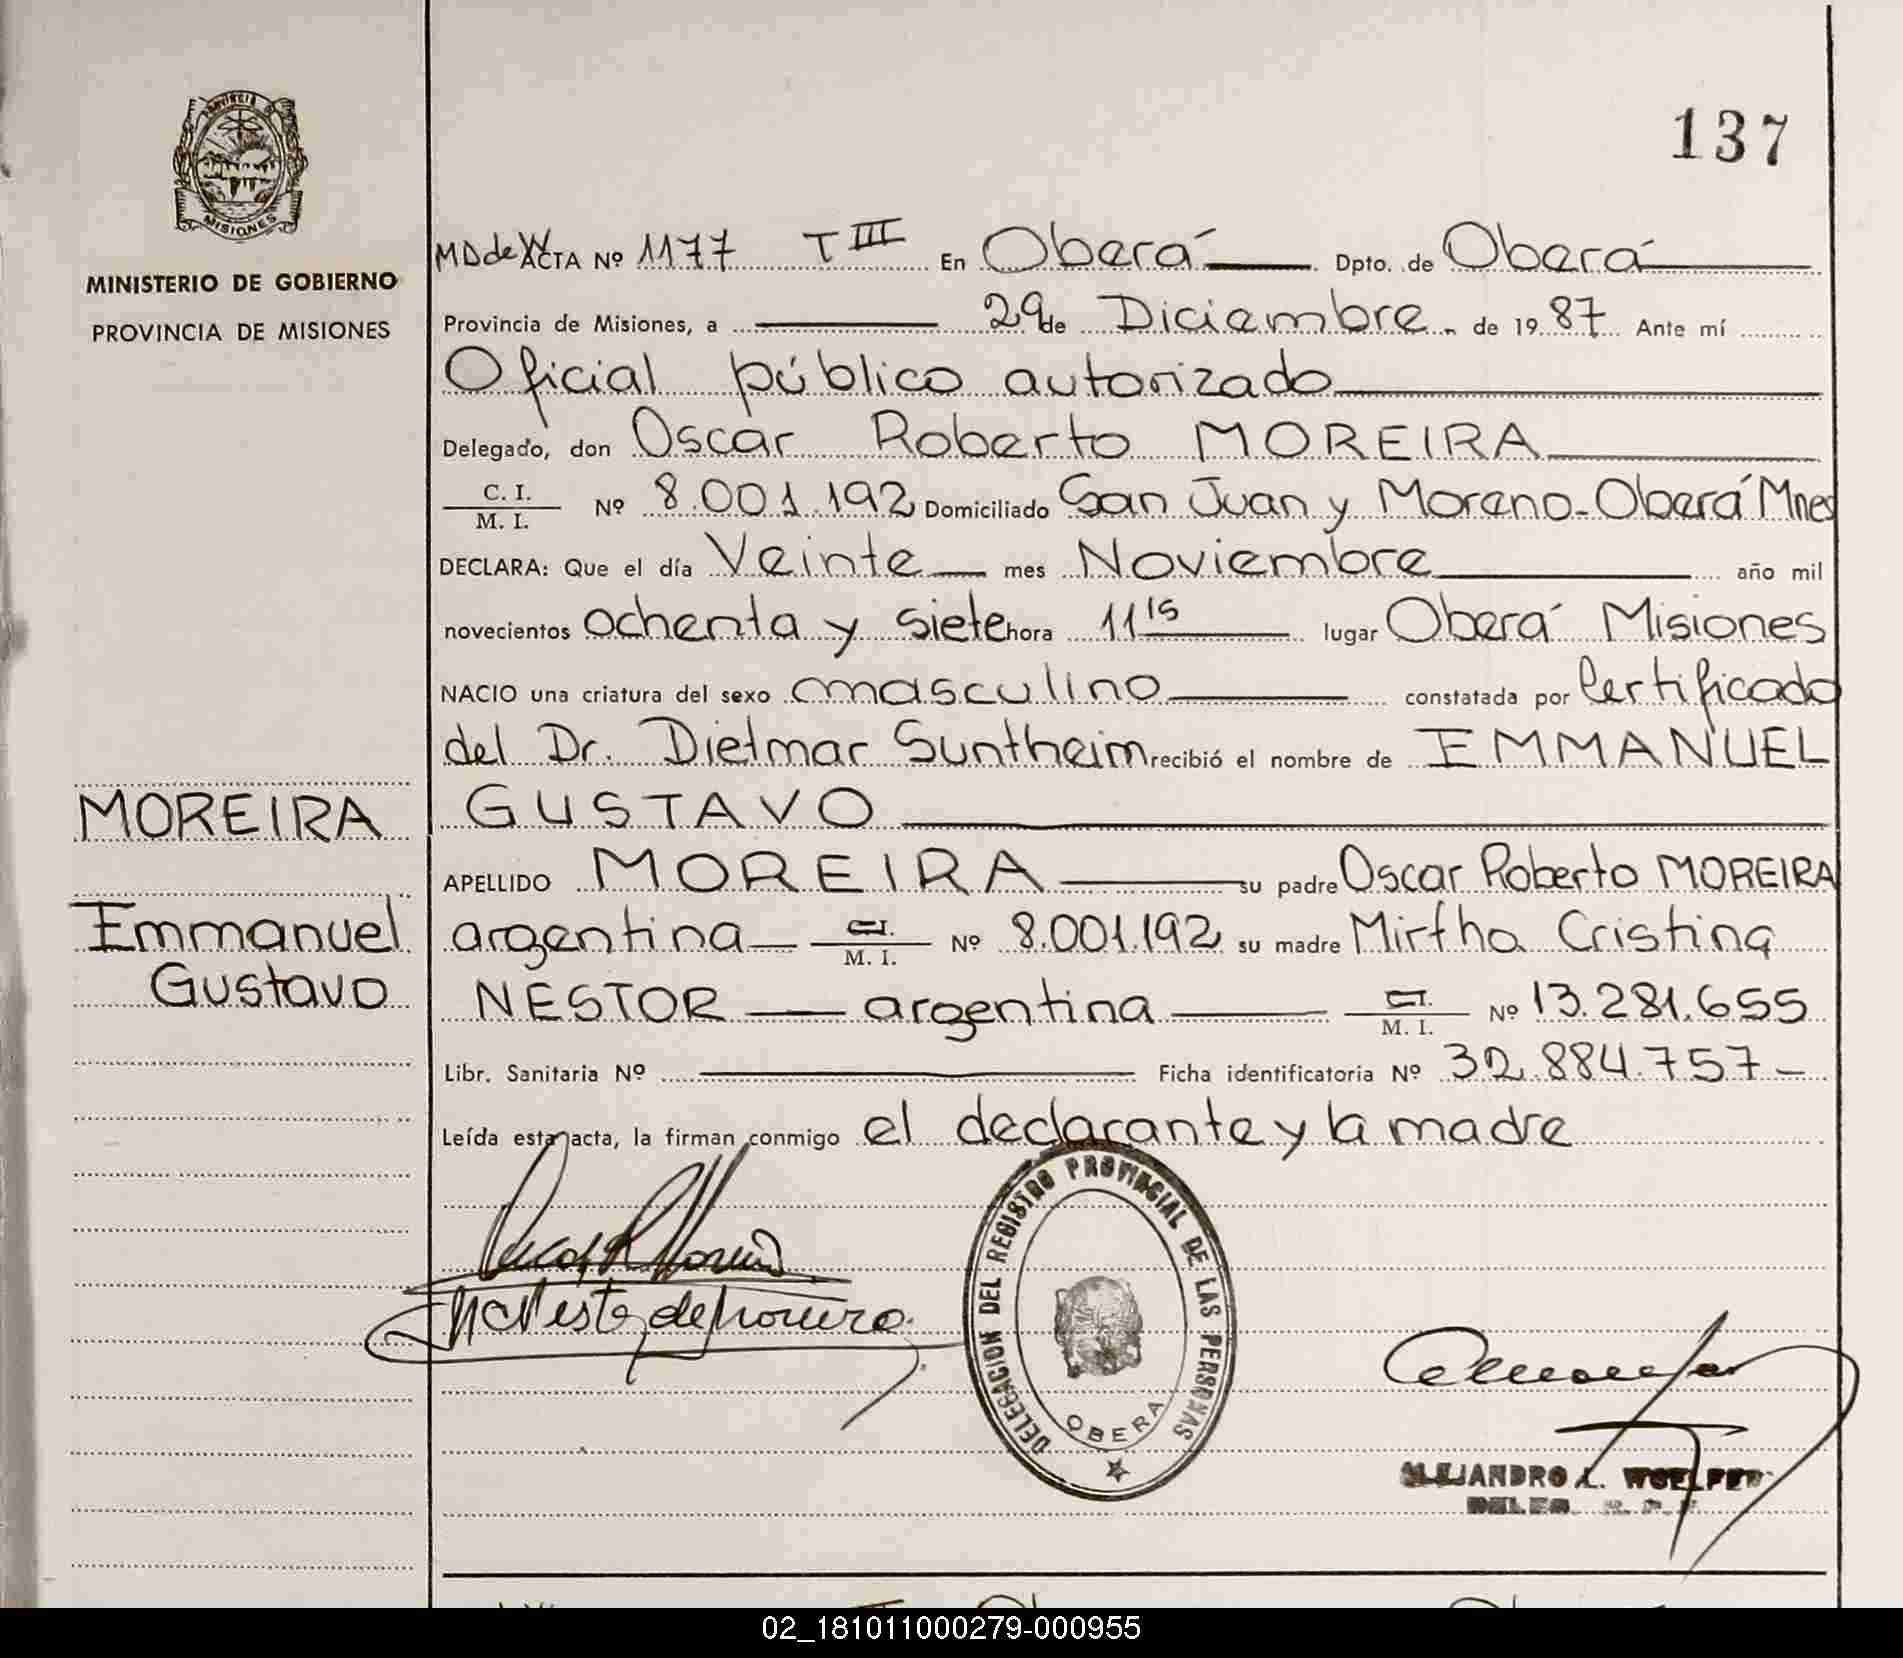 PROVINCIA D
MISIONES
MINISTERIO DE GOBIERNO
PROVINCIA DE MISIONES
137
ACTA Nº 1177 T III En Oberá Dpto. de Oberá
Provincia de Misiones, a 29 de Diciembre de 19 87 Ante mí
Oficial público autorizado
Delegado, don Oscar Roberto MOREIRA
C. I.
M. I. Nº 8.001.192 Domiciliado San Juan y Moreno-Oberá Mnes
DECLARA: Que el día Veinte mes Noviembre año mil
novecientos ochenta y siete hora 11 15 lugar Oberá Misiones
NACIO una criatura del sexo masculino constatada por Certificado
del Dr. Dietmar Suntheim recibió el nombre de EMMANUEL
GUSTAVO
APELLIDO MOREIRA su padre Oscar Roberto MOREIRA
argentina C.I. M. I. Nº 8.001.192 su madre Mirtha Cristina
NESTOR argentina C.I. M. I. Nº 13.281.655
Libr. Sanitaria Nº Ficha identificatoria Nº 32.884.757-
Leída esta acta, la firman conmigo el declarante y la madre
MOREIRA
Emmanuel
Gustavo
DELEGACION DEL REGISTRO PROVINCIAL DE LAS PERSONAS
OBERA
ALEJANDRO L. WOELFER
02_181011000279-000955